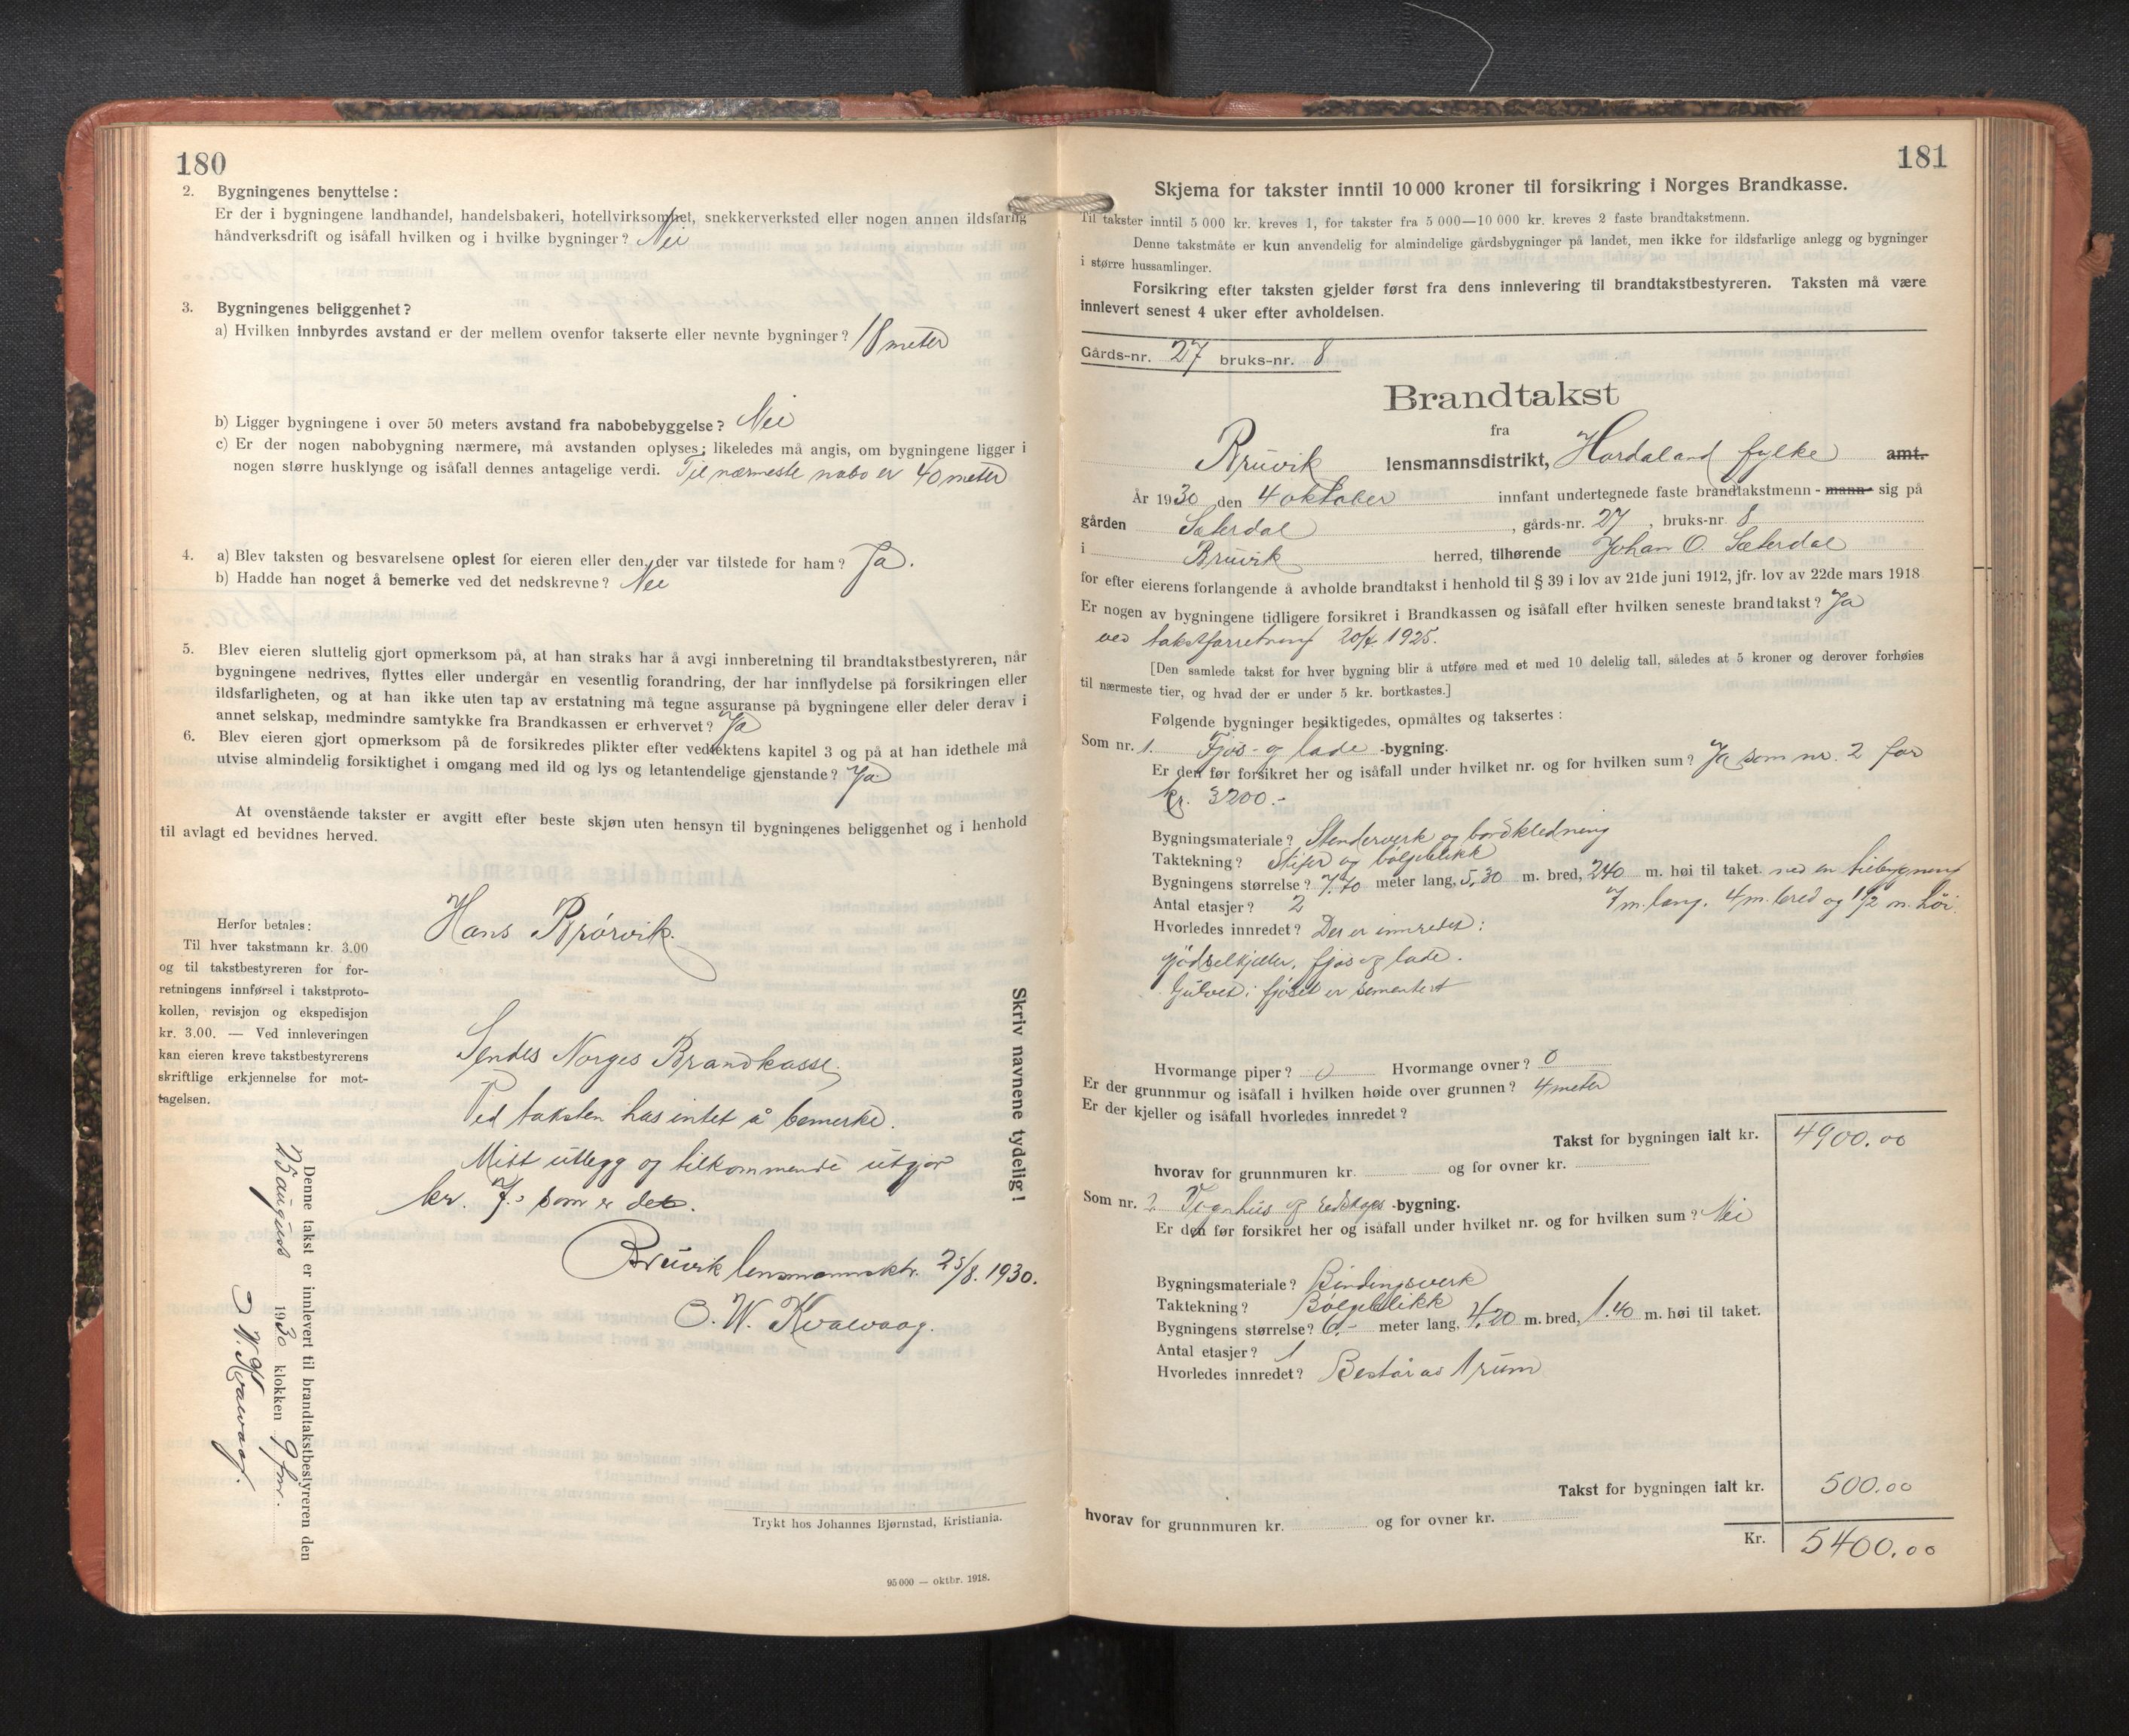 180
2. Bygningenes benyttelse:
Er der i bygningene landhandel, handelsbakeri, hotellvirksomhet, snekkerverksted eller nogen annen ildsfarlig
håndverksdrift og isåfall hvilken og i hvilke bygninger? Nei
3. Bygningenes beliggenhet?
a) Hvilken innbyrdes avstand er der mellem ovenfor takserte eller nevnte bygninger? 18 meter
b) Ligger bygningene i over 50 meters avstand fra nabobebyggelse? Nei
c) Er der nogen nabobygning nærmere, må avstanden oplyses; likeledes må angis, om bygningene ligger i
nogen større husklynge og isåfall dennes antagelige verdi. Til nærmeste nabo er 40 meter
4. a) Blev taksten og besvarelsene oplest for eieren eller den, der var tilstede for ham? Ja.
b) Hadde han noget å bemerke ved det nedskrevne? Nei
5. Blev eieren sluttelig gjort opmerksom på, at han straks har å avgi innberetning til brandtakstbestyreren, når
bygningene nedrives, flyttes eller undergår en vesentlig forandring, der har innflydelse på forsikringen eller
ildsfarligheten, og at han ikke uten tap av erstatning må tegne assuranse på bygningene eller deler derav i
annet selskap, medmindre samtykke fra Brandkassen er erhvervet? Ja
6. Blev eieren gjort opmerksom på de forsikredes plikter efter vedtektens kapitel 3 og på at han idethele må
utvise almindelig forsiktighet i omgang med ild og lys og letantendelige gjenstande? Ja.
At ovenstående takster er avgitt efter beste skjøn uten hensyn til bygningenes beliggenhet og i henhold
til avlagt ed bevidnes herved.
Herfor betales:
Til hver takstmann kr. 3.00
og til takstbestyreren for for-
retningens innførsel i takstproto-
kollen, revisjon og ekspedisjon
kr. 3.00. — Ved innleveringen
kan eieren kreve takstbestyrerens
skriftlige erkjennelse for mot-
tagelsen.
Hans Rørvik.
Sendes Norges Brandkasse.
Ved taksten has intet å bemerke.
Mitt utlegg og tilkommende utgjør
kr. 7.- som er det.
Bruvik lensmannsktr. 25/8. 1930.
O. W. Kvalvaag.
Skriv navnene tydelig!
Denne takst er innlevert til brandtakstbestyreren den
25 august 1930 klokken 9 fm.
O W Kvalvaag.
Trykt hos Johannes Bjørnstad, Kristiania.
95 000 — oktbr. 1918.
181
Skjema for takster inntil 10 000 kroner til forsikring i Norges Brandkasse.
Til takster inntil 5 000 kr. kreves 1, for takster fra 5 000—10 000 kr. kreves 2 faste brandtakstmenn.
Denne takstmåte er kun anvendelig for almindelige gårdsbygninger på landet, men ikke for ildsfarlige anlegg og bygninger
i større hussamlinger.
Forsikring efter taksten gjelder først fra dens innlevering til brandtakstbestyreren. Taksten må være
innlevert senest 4 uker efter avholdelsen.
Gårds-nr. 27 bruks-nr. 8
Brandtakst
fra
Bruvik lensmannsdistrikt, Hordaland fylke amt.
År 1930 den 4 oktober innfant undertegnede faste brandtakstmenn - mann sig på
gården Sæterdal, gårds-nr. 27, bruks-nr 8
i Bruvik herred, tilhørende Johan O. Sæterdal
for efter eierens forlangende å avholde brandtakst i henhold til § 39 i lov av 21de juni 1912, jfr. lov av 22de mars 1918
Er nogen av bygningene tidligere forsikret i Brandkassen og isåfall efter hvilken seneste brandtakst? Ja
ved takstforretning 20/4 1925.
[Den samlede takst for hver bygning blir å utføre med et med 10 delelig tall, således at 5 kroner og derover forhøies
til nærmeste tier, og hvad der er under 5 kr. bortkastes.]
Følgende bygninger besiktigedes, opmåltes og taksertes:
Som nr. 1. Fjøs- og lade -bygning.
Er den før forsikret her og isåfall under hvilket nr. og for hvilken sum? Ja som nr. 2 for
kr. 3200.-
Bygningsmateriale? Stenderverk og bordkledning
Taktekning? Skifer og bølgeblikk
Bygningens størrelse? 7.40 meter lang, 5,30 m. bred, 240 m. høi til taket. med en tilbygning
Antal etasjer? 2 7 m. lang, 4 m. bred og 1 1/2 m. høi.
Hvorledes innredet? Der er innredet:
gjødselkjeller, fjøs og lade.
Gulvet i fjøset er sementert
Hvormange piper? 0 Hvormange ovner? 0
Er der grunnmur og isåfall i hvilken høide over grunnen? 4 meter
Er der kjeller og isåfall hvorledes innredet?
Takst for bygningen ialt kr. 4900.00
hvorav for grunnmuren kr. og for ovner kr.
Som nr. 2 Vognhus og redskaps -bygning.
Er den før forsikret her og isåfall under hvilket nr. og for hvilken sum? Nei
Bygningsmateriale? Bindingsverk
Taktekning? Bølgeblikk
Bygningens størrelse? 6.- meter lang, 4,20 m. bred, 1.40 m. høi til taket.
Antal etasjer? 1
Hvorledes innredet? Består av 1 rum
Takst for bygningen ialt kr. 500.00
hvorav for grunnmuren kr. og for ovner kr.
Kr. 5400.00